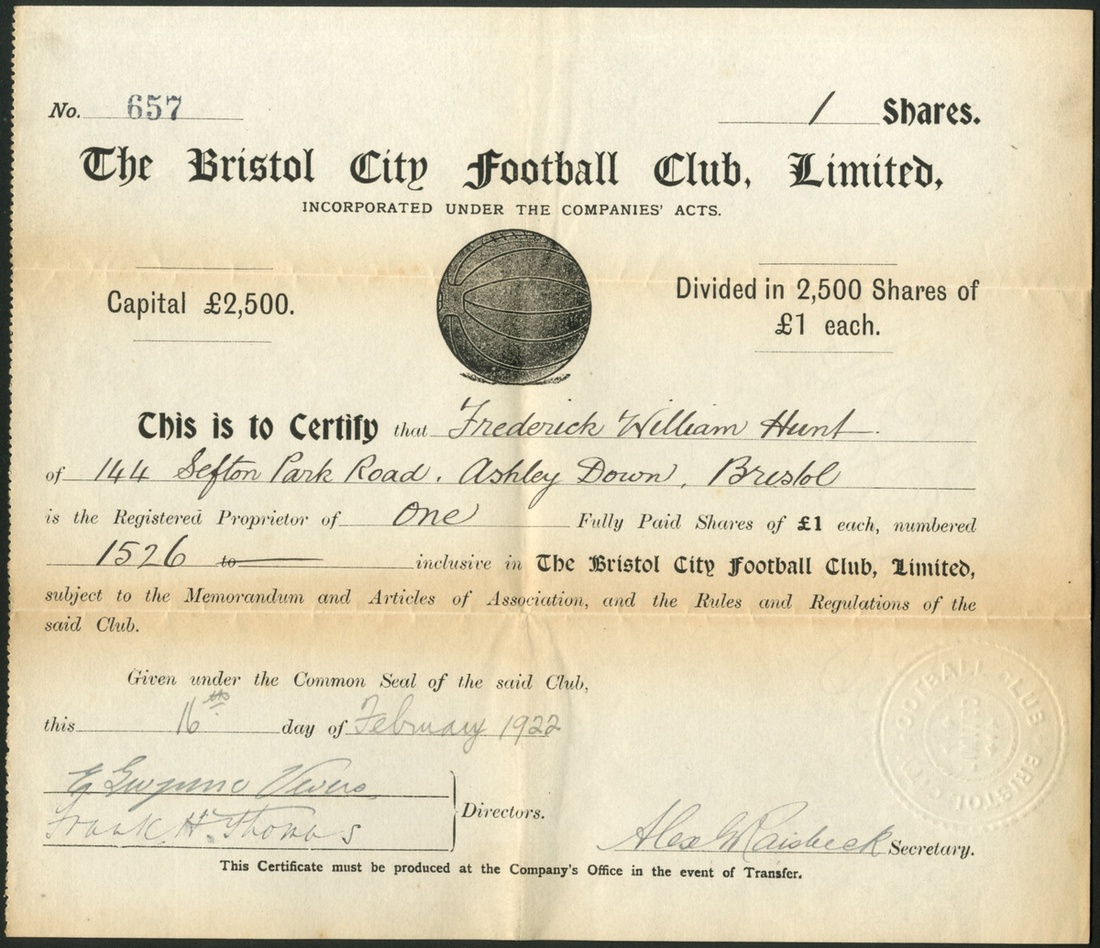 No. 657 1 Shares.
The Bristol City Football Club, Limited,
INCORPORATED UNDER THE COMPANIES' ACTS.
Capital £2,500.
Divided in 2,500 Shares of
£1 each.
This is to Certify that Frederick William Hunt
of 144 Sefton Park Road, Ashley Down, Bristol
is the Registered Proprietor of One Fully Paid Shares of £1 each, numbered
1526 to inclusive in The Bristol City Football Club, Limited,
subject to the Memorandum and Articles of Association, and the Rules and Regulations of the
said Club.
Given under the Common Seal of the said Club,
this 16th day of February 1922
Gwynne Vevers
Frank H. Thomas
Directors.
Alex G Raisbeck Secretary.
This Certificate must be produced at the Company's Office in the event of Transfer.
BRISTOL CITY FOOTBALL CLUB